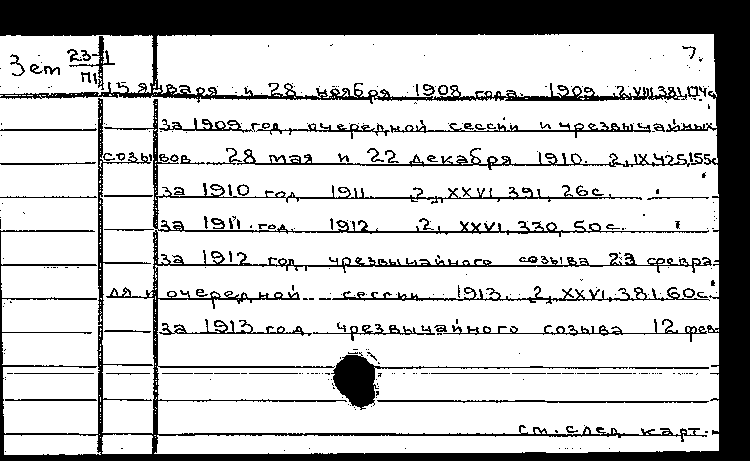 Зет 23-1 7.
П1
15 января и 28 ноября 1908 года. 1909. 2,VIII,381,174с
за 1909 год, очередной сессии и чрезвычайных
созывов 28 мая и 22 декабря 1910. 2,IX,425,155с
за 1910 год 1911. 2, XXVI, 391, 26с.
за 1911 год. 1912. 2, XXVI, 330, 50с.
за 1912 год, чрезвычайного созыва 23 февра-
ля и очередной сессии 1913. 2, XXVI, 381, 60с.
за 1913 год, чрезвычайного созыва 12 фев-
см. след. карт.